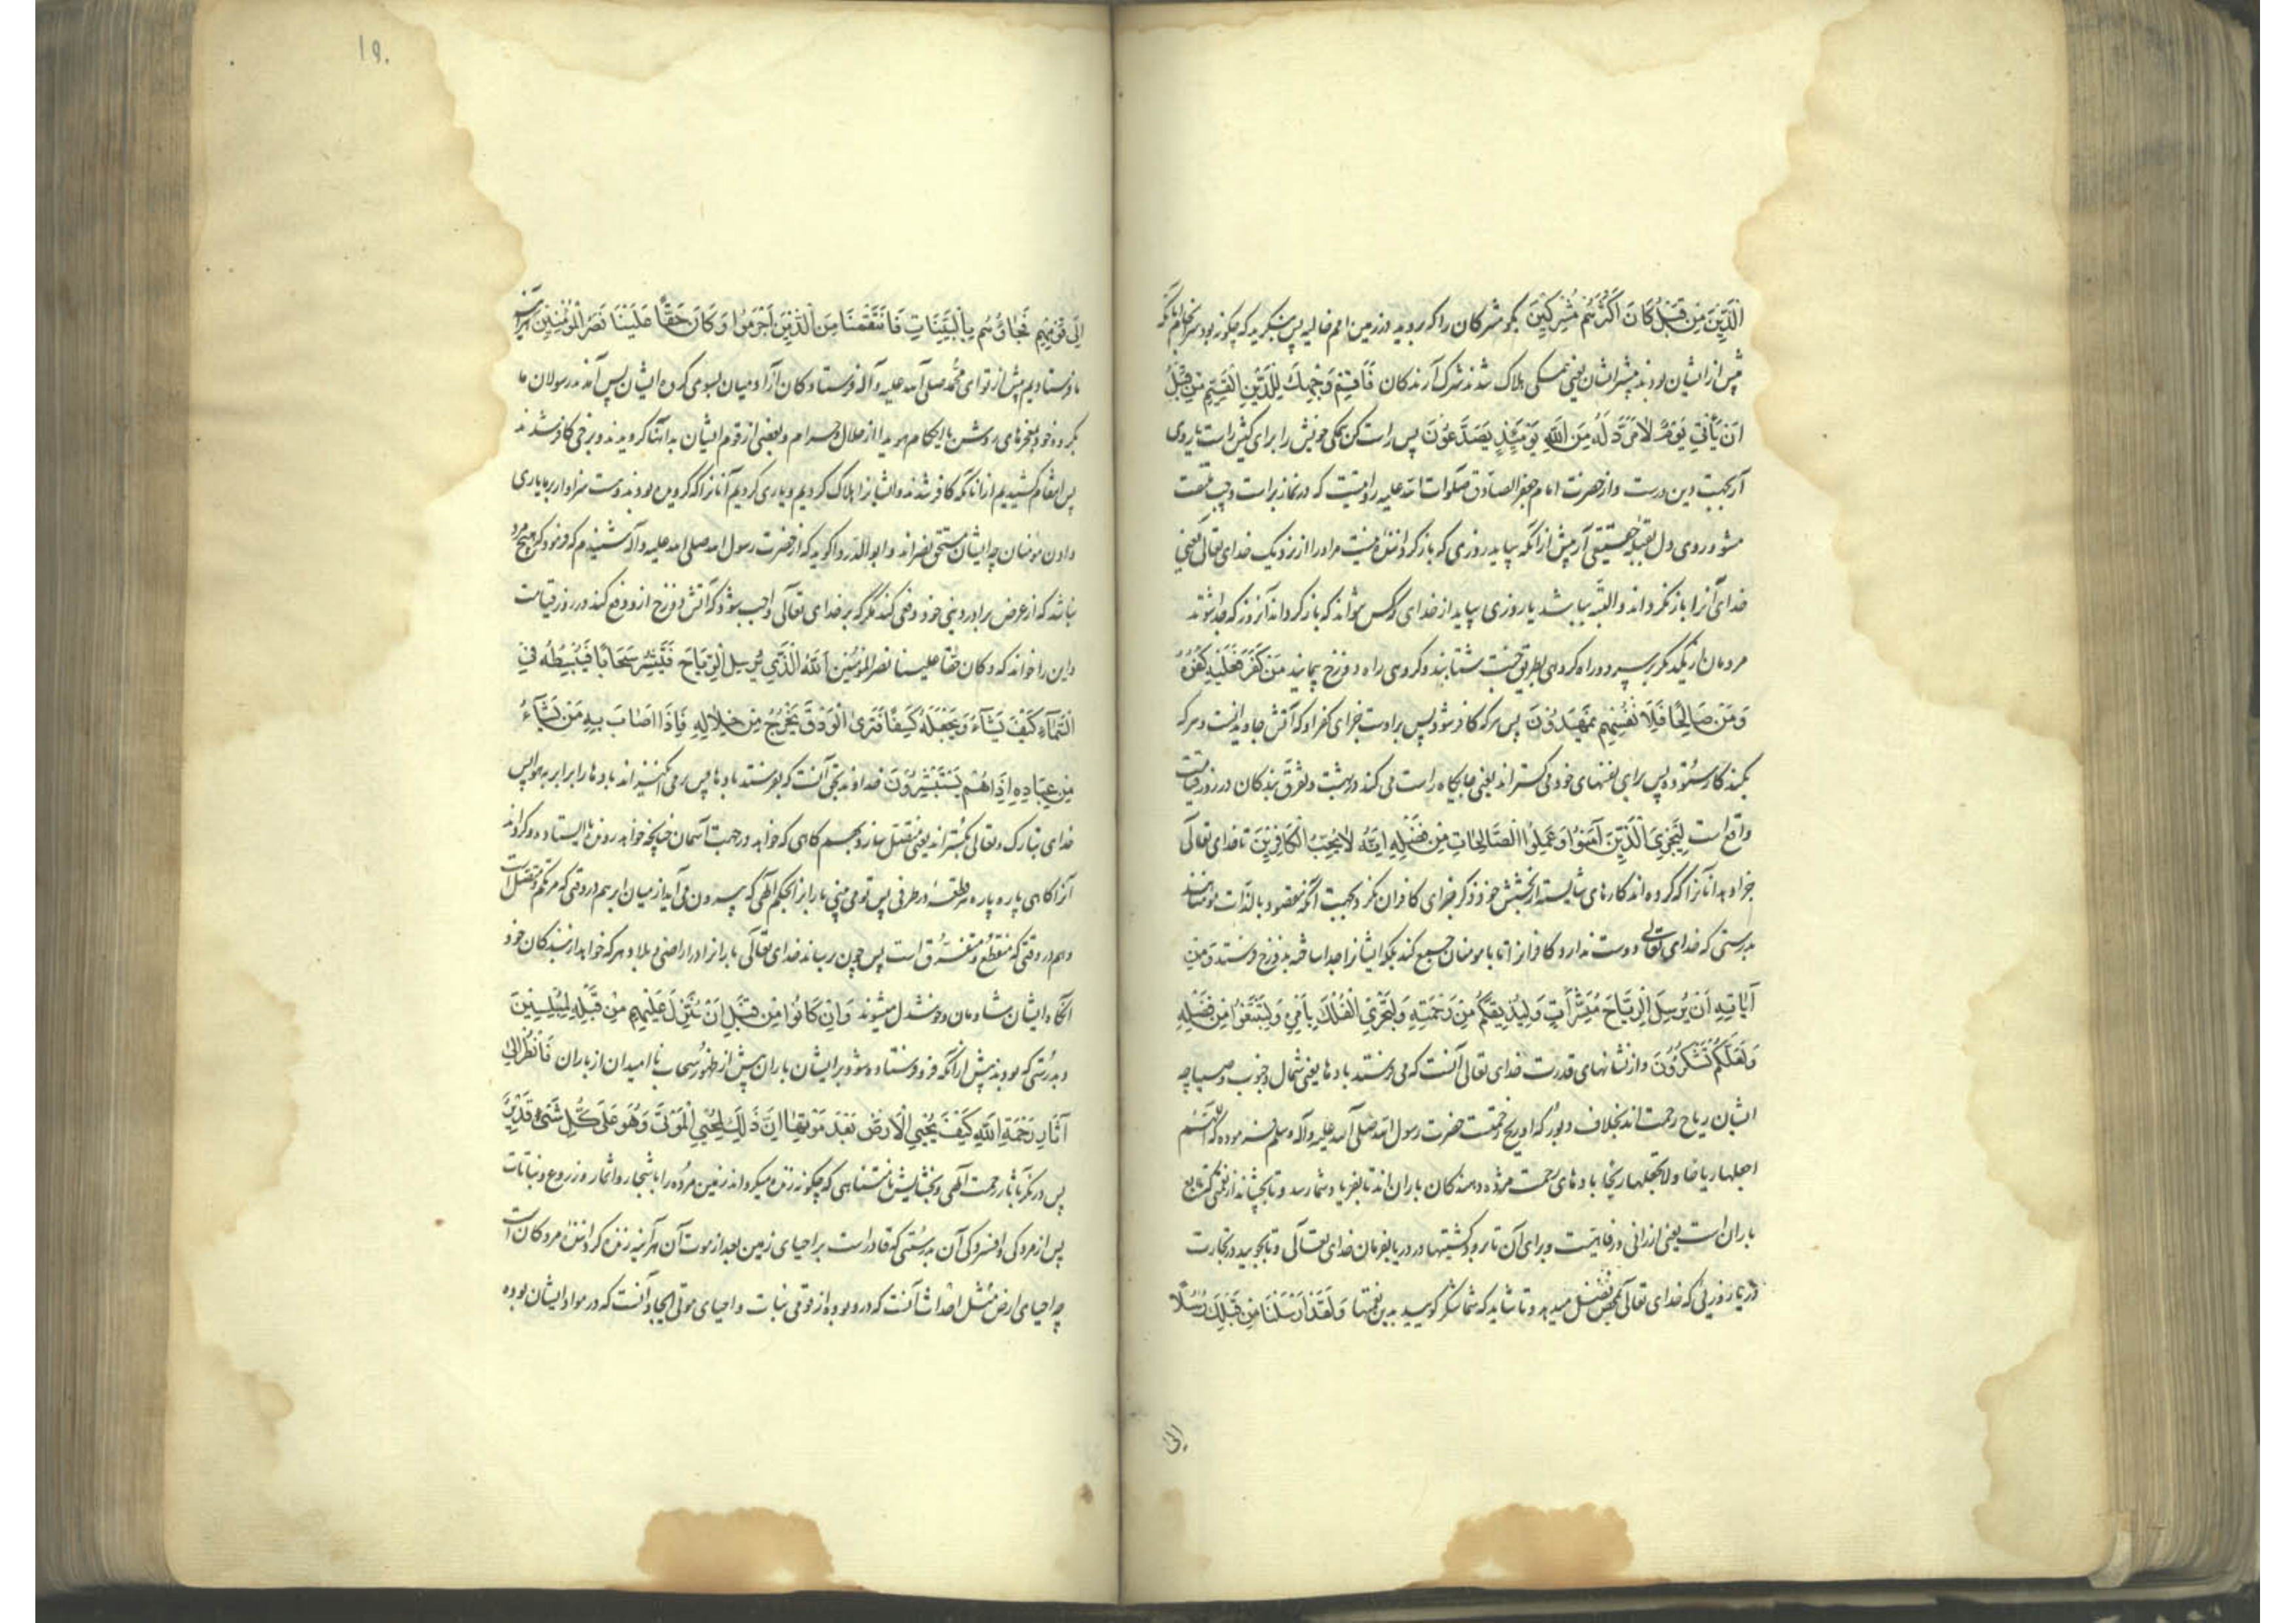 الَّذِينَ مِنْ قَبْلُ كَانَ أَكْثَرُهُمْ مُشْرِكِينَ بگو مشرکان را که بروید در زمین امم خالیه پس بنگرید که چگونه بود سرانجام آنانکه
پیش از ایشان بودند بیشتر ایشان یعنی همگی هلاک شدند شرک آرندکان فَأَقِمْ وَجْهَكَ لِلدِّينِ الْقَيِّمِ مِنْ قَبْلِ
أَنْ يَأْتِيَ يَوْمٌ لَا مَرَدَّ لَهُ مِنَ اللَّهِ يَوْمَئِذٍ يَصَّدَّعُونَ پس راست کن همگی خویش را برای کیش راست یا روی
آر بجهت دین درست و از حضرت امام جعفر الصادق صلوات الله علیه روایتست که در نماز براست و چپ ملتفت
مشو و روی دل بقبله حقیقی آر پیش از آنکه بیاید روزی که باز گرداننده نیست مر او را از نزدیک خدای تعالی یعنی
خدای آنرا باز نگرداند و البته بباشد یا روزی بیاید از خدای که کس نتواند که باز گرداند آنروز که جدا شوند
مردمان از یکدیگر بر سر دو راه گروهی بطریق جنت شتابند و گروهی راه دوزخ پیمایند مَنْ كَفَرَ فَعَلَيْهِ كُفْرُهُ
وَمَنْ صَالِحًا فَلِأَنْفُسِهِمْ يَمْهَدُونَ پس هر که کافر شود پس بر اوست جزای کفر او که آتش جاوید است و هر که
بکند کار ستوده پس برای نفسهای خود می گسترانند یعنی جایگاه راست می کنند در بهشت و تفرق بندکان در روز قیامت
واقع است لِيَجْزِيَ الَّذِينَ آمَنُوا وَعَمِلُوا الصَّالِحَاتِ مِنْ فَضْلِهِ إِنَّهُ لَا يُحِبُّ الْكَافِرِينَ تا خدای تعالی
جزا دهد آنانرا که گرویده اند کارهای شایسته از بخشش خود ذکر جزای کافران نکرد بجهت آنکه مقصود بالذات مومنانند
بدرستی که خدای تعالی دوست ندارد کافرانرا تا با مومنان جمع کند بلکه ایشانرا جدا ساخته بدوزخ فرستد وَمِنْ
آيَاتِهِ أَنْ يُرْسِلَ الرِّيَاحَ مُبَشِّرَاتٍ وَلِيُذِيقَكُمْ مِنْ رَحْمَتِهِ وَلِتَجْرِيَ الْفُلْكُ بِأَمْرِهِ وَلِتَبْتَغُوا مِنْ فَضْلِهِ
وَلَعَلَّكُمْ تَشْكُرُونَ و از نشانهای قدرت خدای تعالی آنست که می فرستد بادها یعنی شمال و جنوب و صبا چه
ایشان ریاح رحمت اند بخلاف دبور که او ریح نقمتست حضرت رسول الله صلی الله علیه و آله وسلم فرموده که اللهم
اجعلها ریاحا ولا تجعلها ریحا بادهای رحمت مژده دهندکان باران اند تا بفریاد شما رسد و تا بچشاند از نعمتی که تابع
باران است یعنی ارزانی و رفاهیت و برای آن تا برود کشتیها در دریا بفرمان خدای تعالی و تا بجویید در تجارت
دریا روزی که خدای تعالی بمحض تفضل میدهد و تا شاید که شما شکر گویید بدین نعمتها وَلَقَدْ أَرْسَلْنَا مِنْ قَبْلِكَ رُسُلًا
الی
۱۹۰
إِلَى قَوْمِهِمْ فَجَاؤُهُمْ بِالْبَيِّنَاتِ فَانْتَقَمْنَا مِنَ الَّذِينَ أَجْرَمُوا وَكَانَ حَقًّا عَلَيْنَا نَصْرُ الْمُؤْمِنِينَ هر آینه
ما فرستادیم پیش از تو ای محمد صلی الله علیه و آله فرستادکان از آدمیان بسوی گروه ایشان پس آمدند رسولان ما
بگروه خود بمعجزهای روشن یا احکام هویدا از حلال و حرام و بعضی از قوم ایشان بدانها گرویدند و برخی کافر شدند
پس انتقام کشیدیم از آنانکه کافر شدند و ایشانرا هلاک کردیم و یاری کردیم آنانرا که گرویده بودند و هست سزاوار بر ما یاری
دادن مومنان چه ایشان مستحق نصراند و ابوالدردا گوید که از حضرت رسول الله صلی الله علیه و آله شنیدم که فرمود که هیچ مرد
نباشد که از عرض برادر دینی خود دفعی کند مگر که بر خدای تعالی واجب شود که آتش دوزخ از و دفع کند در روز قیامت
و این را خواند که و کان حقا علینا نصر المؤمنین اللَّهُ الَّذِي يُرْسِلُ الرِّيَاحَ فَتُثِيرُ سَحَابًا فَيَبْسُطُهُ فِي
السَّمَاءِ كَيْفَ يَشَاءُ وَيَجْعَلُهُ كِسَفًا فَتَرَى الْوَدْقَ يَخْرُجُ مِنْ خِلَالِهِ فَإِذَا أَصَابَ بِهِ مَنْ يَشَاءُ
مِنْ عِبَادِهِ إِذَا هُمْ يَسْتَبْشِرُونَ خداوند بحق آنست که بفرستد بادها پس بر می انگیزاند بادها ابر را بر هوا پس
خدای تبارک و تعالی بگستراند یعنی متصل سازد بهم گاهی که خواهد در جهت آسمان چنانچه خواهد رونده یا ایستاده و گرداند
آنرا گاهی پاره پاره هر قطعه در طرفی پس تو می بینی بارانرا بحکم الهی که بیرون می آید از میان ابر هم در وقتی که متراکم و متصل است
و هم در وقتی که منقطع و متفرق است پس چون برساند خدای تعالی بارانرا در اراضی و بلاد هر که خواهد از بندکان خود
آنگاه ایشان شادمان و خوشدل میشوند وَإِنْ كَانُوا مِنْ قَبْلِ أَنْ يُنَزَّلَ عَلَيْهِمْ مِنْ قَبْلِهِ لَمُبْلِسِينَ
و بدرستی که بودند پیش از آنکه فرو فرستاده شود بر ایشان باران پیش از ظهور سحاب نا امیدان از باران فَانْظُرْ إِلَى
آثَارِ رَحْمَةِ اللَّهِ كَيْفَ يُحْيِي الْأَرْضَ بَعْدَ مَوْتِهَا إِنَّ ذَلِكَ لَمُحْيِي الْمَوْتَى وَهُوَ عَلَى كُلِّ شَيْءٍ قَدِيرٌ
پس در نگر بآثار رحمت الهی و بخشایش نامتناهی که چگونه زنده میگرداند زمین مرده را باشجار و اثمار و زروع و نباتات
پس از مردگی و افسردگی آن بدرستی که قادرست بر احیای زمین بعد از موت آن هر آینه زنده گرداننده مردکان است
چه احیای ارض مثل احداث آنست که درو بوده از قوی نبات و احیای موتی ایجاد آنست که در مواد ایشان بوده